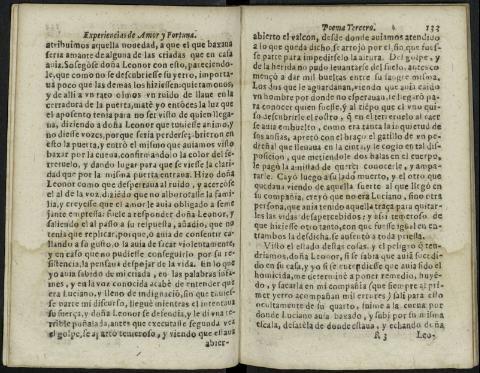 Experiencias de Amor y Fortuna.
atribuimos aquella nouedad, a que el que baxaua
seria amante de alguna de las criadas que en casa
auia. Sosegòse doña Leonor con esto, pareciendo-
le, que como no se descubriesse su yerro, importa-
uà poco que las demas los hiziessen; quietamonos,
y de alli a vn rato oìmos vn ruido de llaue en la
cerradura de la puerta, matè yo entõces la luz que
el aposento tenia para no ser visto de quien llega-
ua, diziendo a doña Leonor que tuuiesse animo, y
no diesse vozes, porque seria perderse; abrieron en
esto la puerta, y entrò el mismo que auiamos visto
baxar por la cuerda, confirmandolo la color del fe-
rreruelo, y dando lugar para que se viesse la clari-
dad que por la misma puerta entraua. Hizo doña
Leonor como que despertaua al ruido, y acercòse
el al de la voz, diziẽdo que no alborotasse la fami-
lia, y creyesse que el amor le auia obligado a seme
jante empressa: fuele a responder doña Leonor, y
saliendo el al passo a su repuesta, añadiò, que no
tenia que replicar, porque, o auia de consentir ca-
llando a su gusto, o la auia de sacar violentamente,
y en caso que no pudiesse conseguirlo por su re-
sistencia, la pensaua despojar de la vida. En lo que
yo auia sabido de mi criada, en las palabras infa-
mes, y en la voz conocida acabè de entender que
era Luciano, y lleno de indignaciõ, sin que tuuies-
se parte mi discurso, lleguè mientras el intentaua
su fuerça, y doña Leonor se defendia, y le di vna te-
rrible puñalada, antes que executasse segunda vez
el golpe, se apartò temeroso, y viendo que estaua
abier-
Poema Tercero. 133
abierto el valcon, desde donde auiamos atendido
a lo que queda dicho, se arrojò por el, sin que fues-
se parte para impedirselo la altura. Del golpe, y
de la herida no pudo leuantarse del suelo, antes co-
mençò a dar mil bueltas entre su sangre misma.
Los dos que le aguardauan, viendo que auia caido
vn hombre por donde no esperauan, se llegarõ pa-
ra conocer quien fuesse, y al tiẽpo que el vno qui-
so descubrirle el rostro, q̃ en el ferreruelo al caer
se auia embuelto, como era tanta la inquietud de
sus ansias, apretò con el braço el gatillo de vn pe-
dreñal que lleuaua en la cinta, y le cogio en tal dis-
posicion, que metiendole dos balas en el cuerpo,
le pagò la amistad de querer conocerle, y ampa-
rarle. Cayò luego a su lado muerto, y el otro que
quedaua viendo de aquella suerte al que llegò en
su compañia, creyò que no era Luciano, sino otra
persona, que auia tenido aquella traça para quitar-
les las vidas desapercebidos: y assi temeroso de
que hiziesse otro tanto, con que fuesse igual en en-
trambos la desdicha, se ausentò a toda priessa.
Visto el estado destas cosas, y el peligro q̃ ten-
driamos, doña Leonor, si se sabia que auia sucedi-
do en su casa, y yo si se entendiesse que auia sido el
homicida, me determinè a poner remedio, huyẽ-
do, y sacarla en mi compañia (que siempre al pri-
mer yerro acompañan mil errores) salì para ello
ocultamente de su quarto, fuime a la cuerda por
donde Luciano auia baxado, y subì por su misma
escala, desatèla de donde estaua, y echando doña
R 3 Leo-